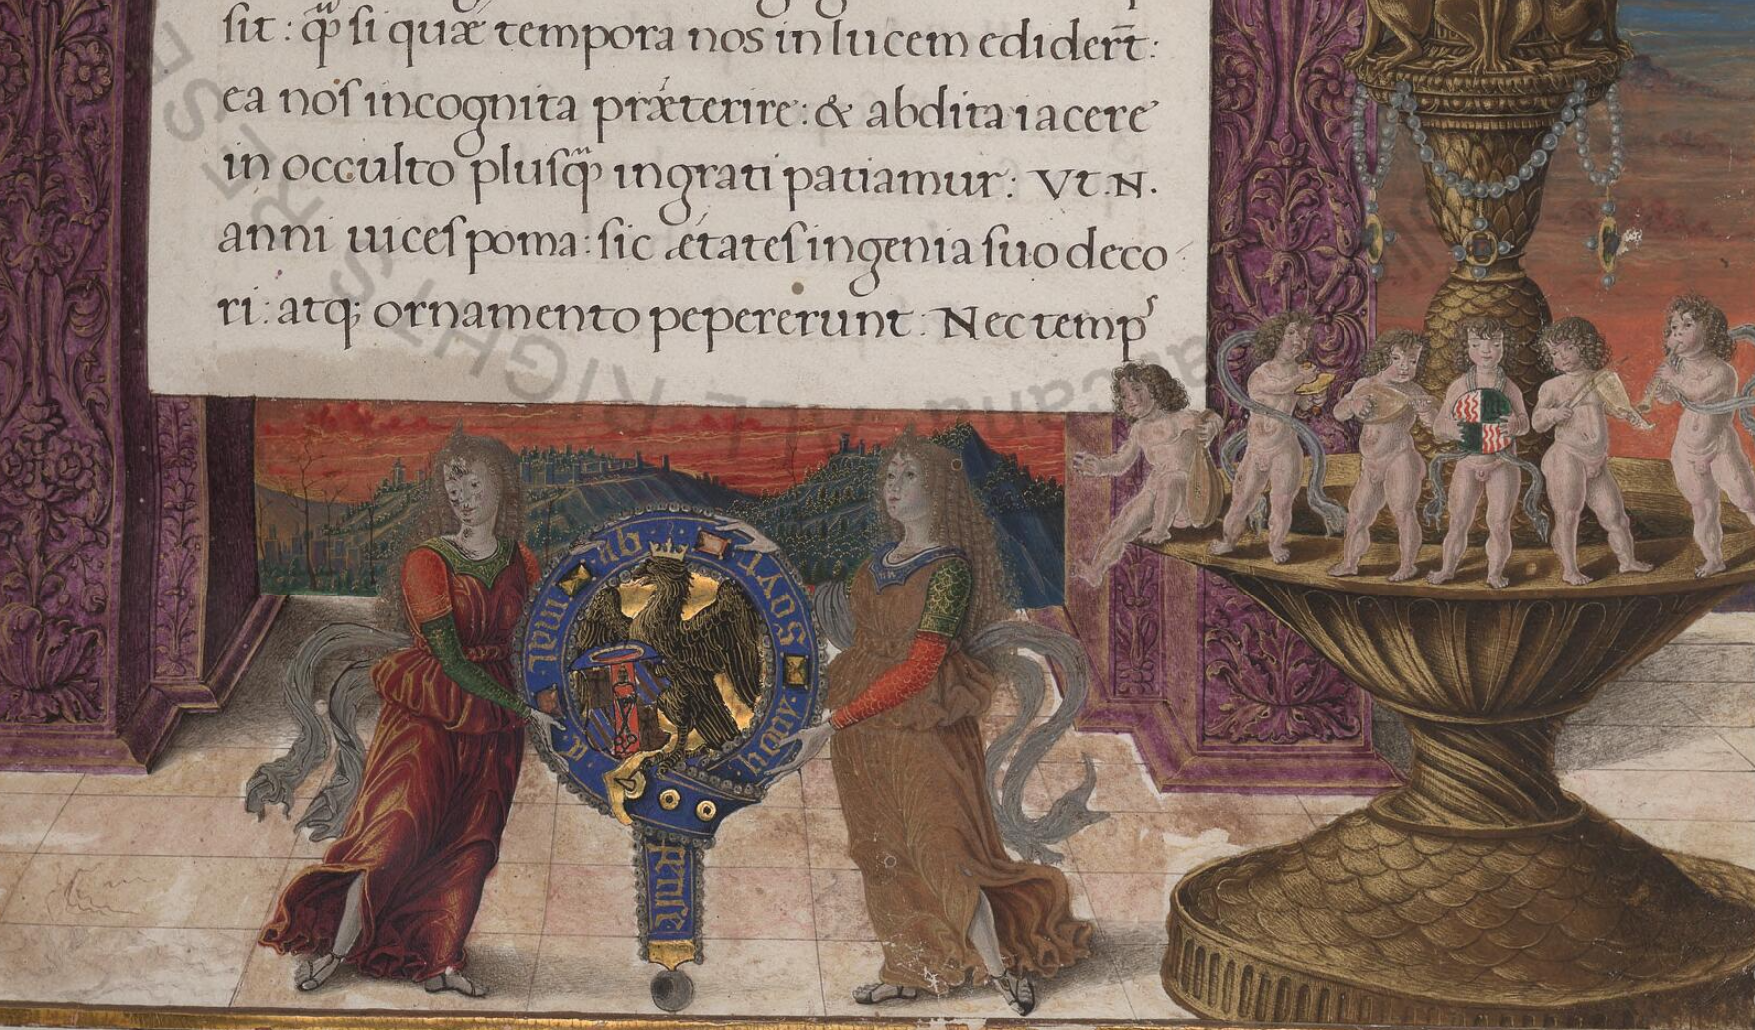 sit: qᷓ si quæ tempora nos in lucem edidert̄:
ea nos incognita præterire: & abdita iacere
in occulto plusqᷓ ingrati patiamur: Vt. N.
anni uices poma: sic ætates ingenia suo deco
ri: atq; ornamento pepererunt. Nec temp
ALL RIGHT RESE
HONY SOYT
mal
pense